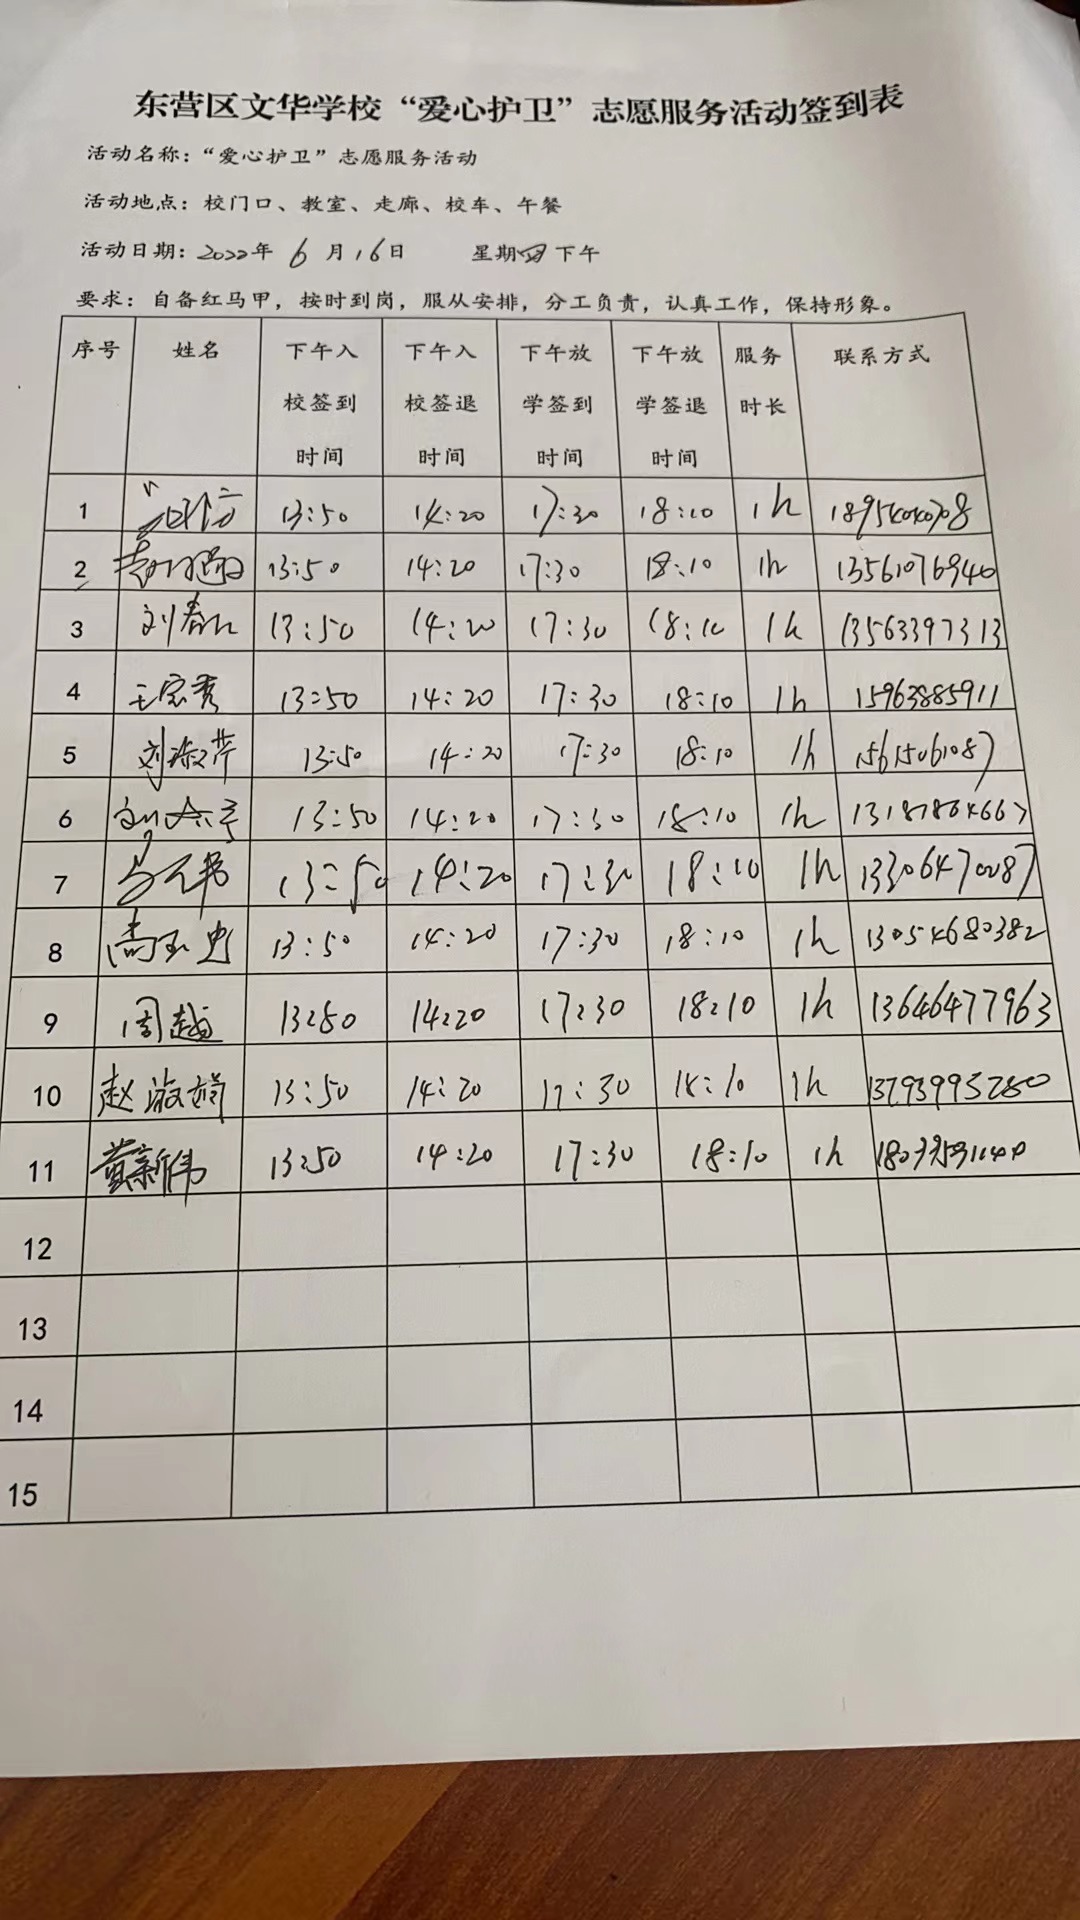 东营区文华学校“爱心护卫”志愿服务活动签到表
活动名称：“爱心护卫”志愿服务活动
活动地点：校门口、教室、走廊、校车、午餐
活动日期：2022年 6 月 16日 星期四下午
要求：自备红马甲，按时到岗，服从安排，分工负责，认真工作，保持形象。
序号 姓名 下午入校签到时间 下午入校签退时间 下午放学签到时间 下午放学签退时间 服务时长 联系方式
1 13:50 14:20 17:30 18:10 1h
2 13:50 14:20 17:30 18:10 1h 13561076940
3 13:50 14:20 17:30 18:10 1h 13563397313
4 王宗秀 13:50 14:20 17:30 18:10 1h 15963885911
5 刘淑芹 13:50 14:20 17:30 18:10 1h 15615061087
6 13:50 14:20 17:30 18:10 1h 13187864667
7 13:50 14:20 17:30 18:10 1h 13306470087
8 13:50 14:20 17:30 18:10 1h 13054680382
9 周越 13:50 14:20 17:30 18:10 1h 13646477963
10 赵淑娟 13:50 14:20 17:30 18:10 1h 13793993280
11 黄新伟 13:50 14:20 17:30 18:10 1h
12
13
14
15